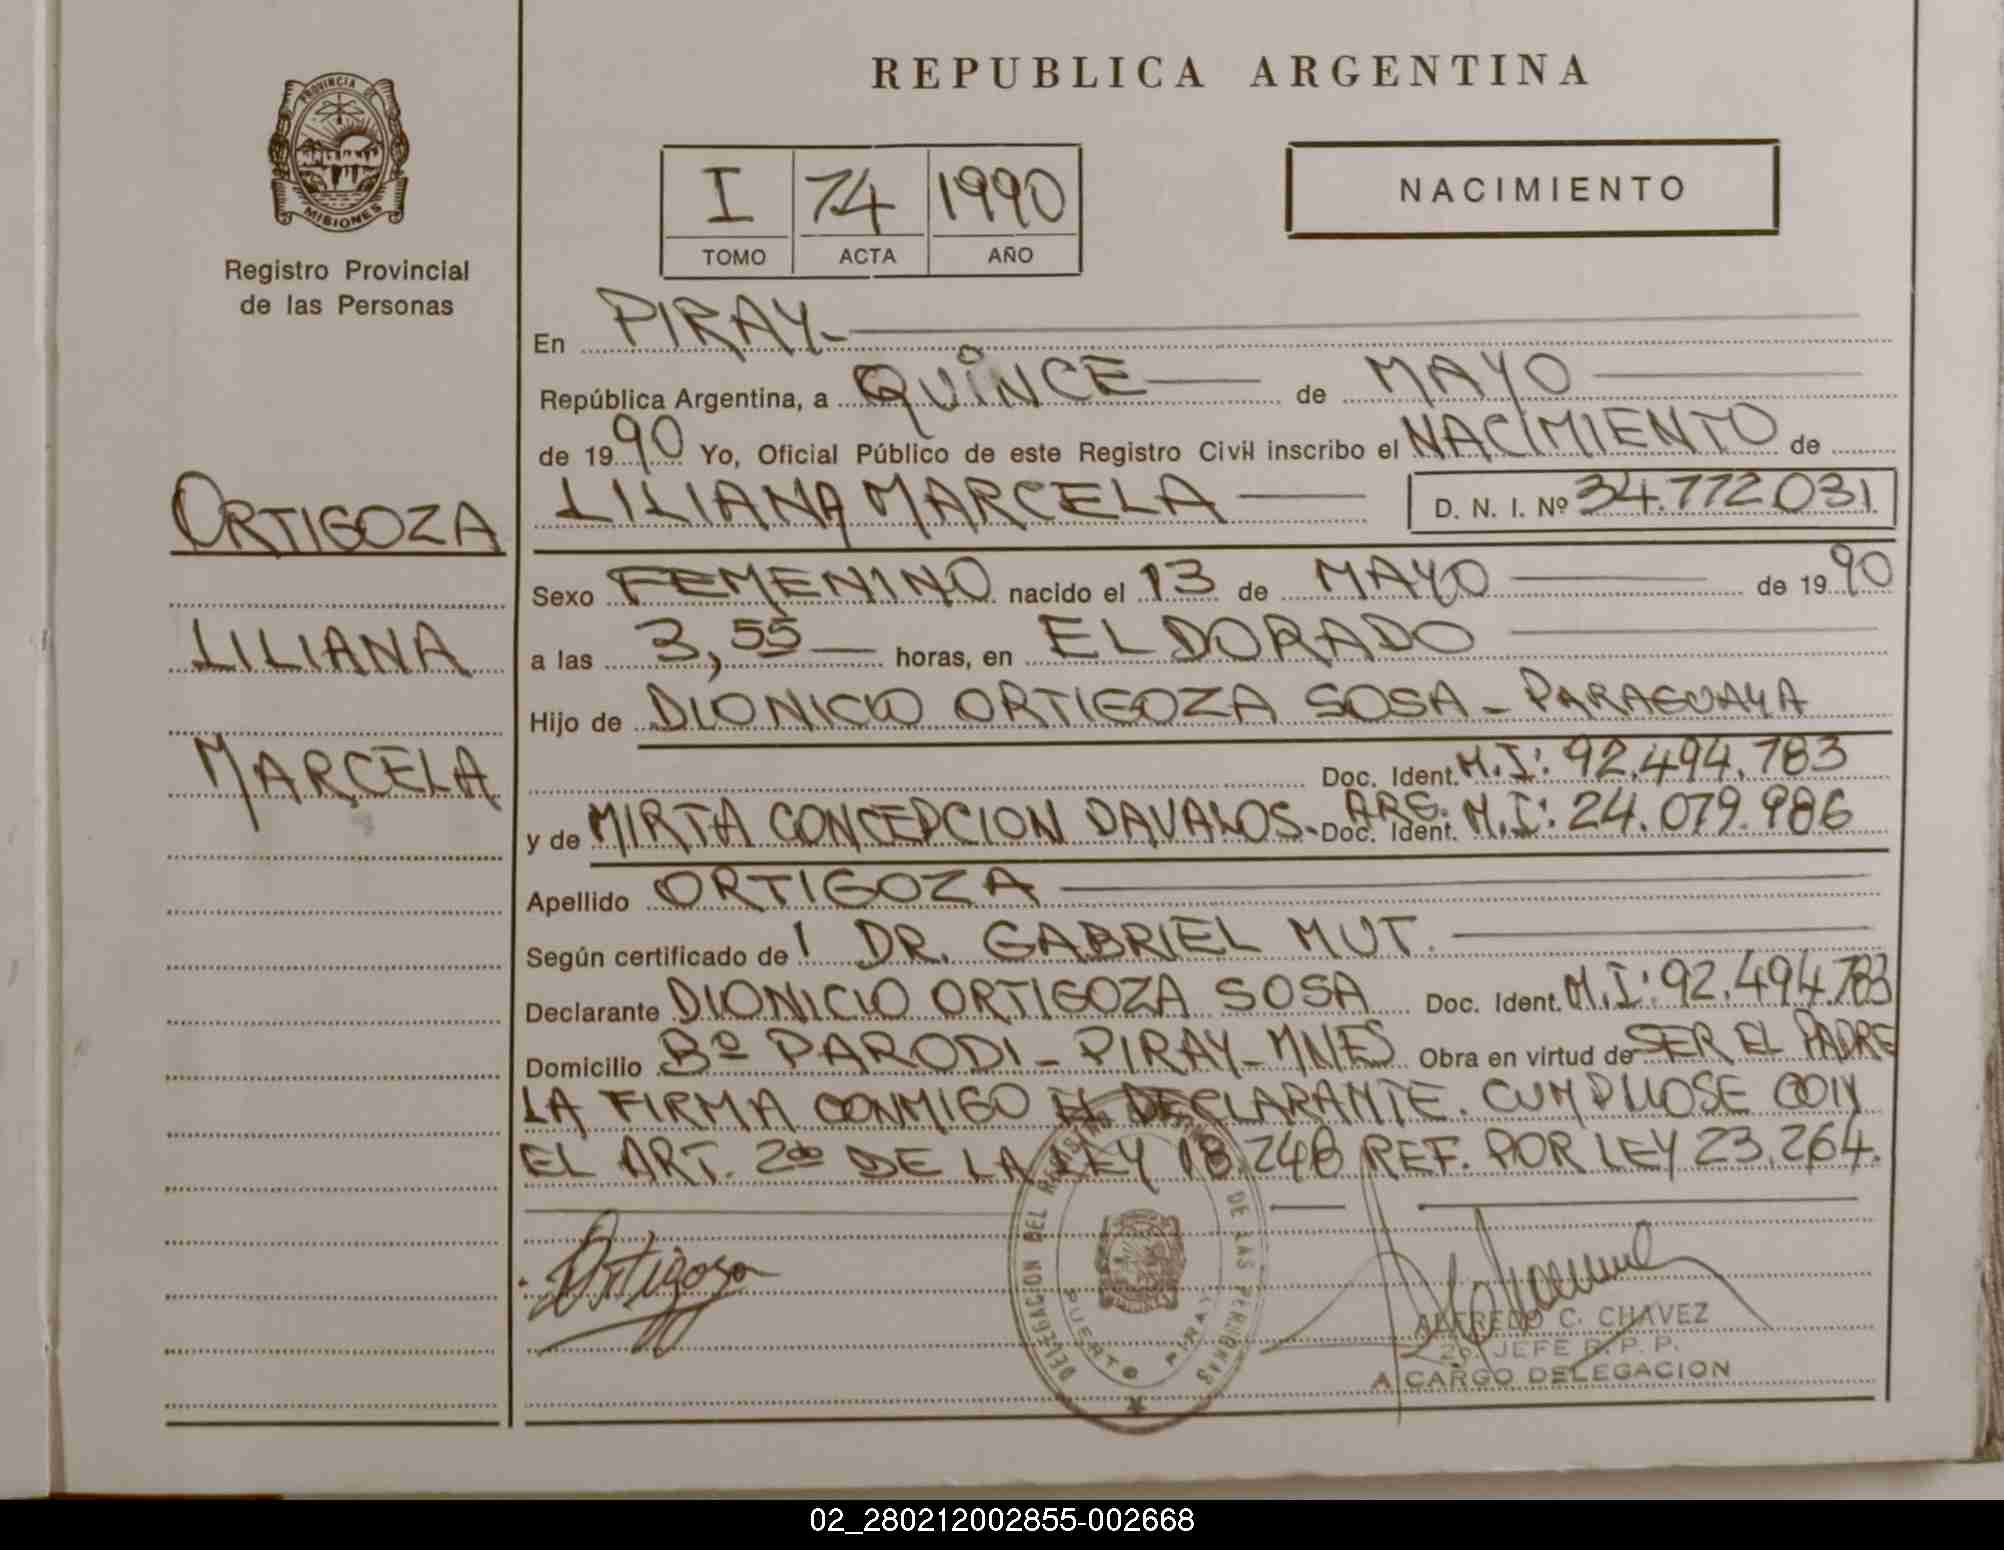 REPUBLICA ARGENTINA
PROVINCIA DE
MISIONES
Registro Provincial
de las Personas
I 74 1990
TOMO ACTA AÑO
NACIMIENTO
ORTIGOZA
LILIANA
MARCELA
En PIRAY-
República Argentina, a QUINCE de MAYO
de 1990 Yo, Oficial Público de este Registro Civil inscribo el NACIMIENTO de
LILIANA MARCELA D. N. I. Nº 34.772.031
Sexo FEMENINO nacido el 13 de MAYO de 1990
a las 3,55 horas, en ELDORADO
Hijo de DIONICIO ORTIGOZA SOSA - PARAGUAYA
Doc. Ident. M.I: 92.494.783
y de MIRTA CONCEPCION DAVALOS- ARG. Doc. Ident. M.I: 24.079.986
Apellido ORTIGOZA
Según certificado de 1 DR. GABRIEL MUT.
Declarante DIONICIO ORTIGOZA SOSA Doc. Ident. M.I: 92.494.783
Domicilio Bº PARODI - PIRAY - MNES Obra en virtud de SER EL PADRE
LA FIRMA CONMIGO EL DECLARANTE. CUMPLIOSE CON
EL ART. 2do DE LA LEY 18.248 REF. POR LEY 23.264.
Ortigosa
DELEGACION DEL REGISTRO DE LAS PERSONAS
PUERTO PIRAY
ALFREDO C. CHAVEZ
2º. JEFE R. P. P.
A CARGO DELEGACION
02_280212002855-002668